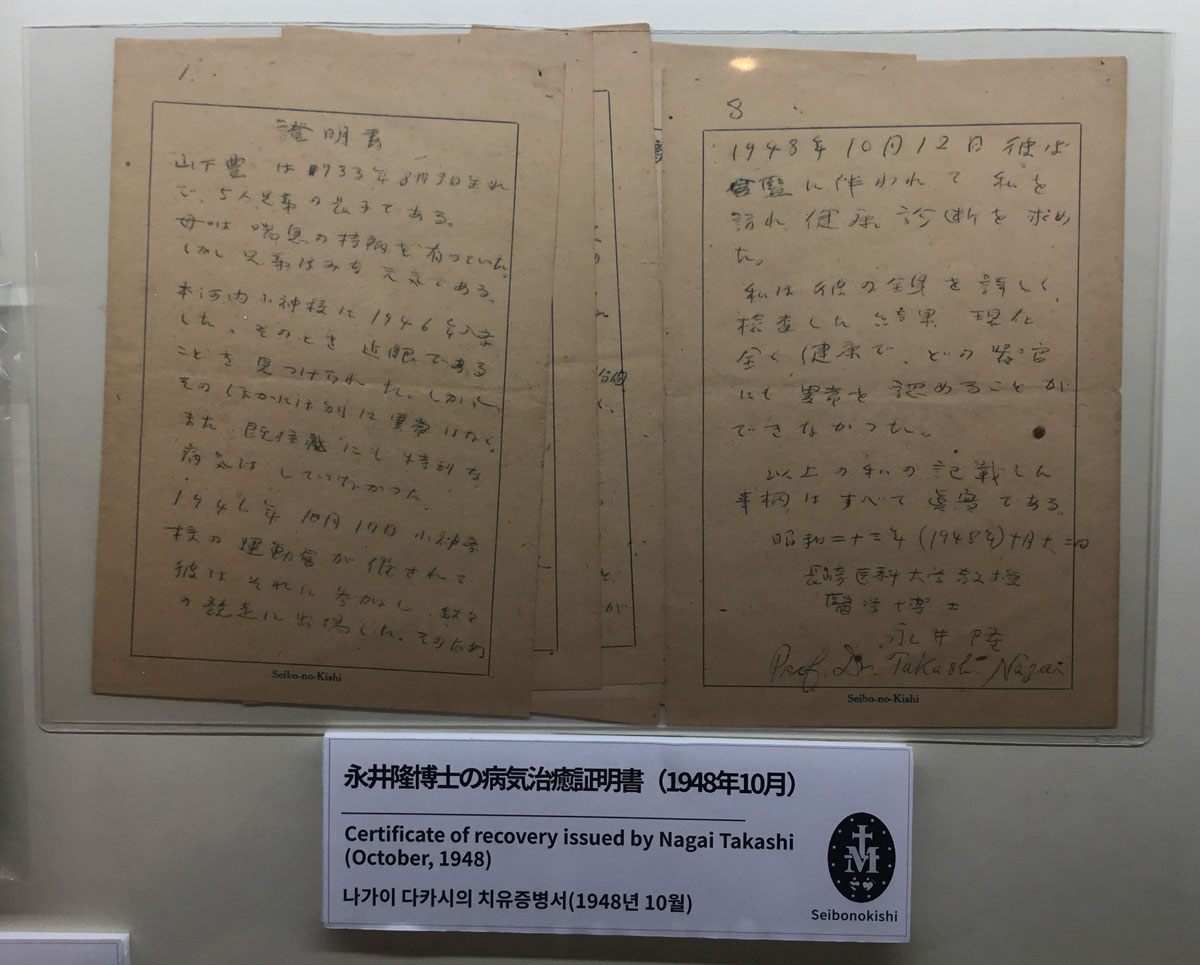 1.
證明書
山下豊は1933年8月9日生れ
で、5人兄弟の長子である。
母は喘息の持病を有っていた。
しかし兄弟はみな元気である。
本河内小神校に1946年入学
した。そのとき近眼である
ことを見つけられた。しかし、
そのほかには別に異常はなく、
また既往にも特別な
病気はしていなかった。
1946年10月17日小神学
校の運動会が催されて
彼はそれに参加し、数々
の競走に出場した。そのため
Seibo-no-Kishi
8
1948年10月12日彼は
に伴われて私を
訪れ健康診断を求め
た。
私は彼の全身を詳しく
検査した結果 現在
全く健康で、どの器官
にも異常を認めることが
できなかった。
以上の私の記載した
事柄はすべて眞実である
昭和二十三年(1948年)十月十二日
長崎医科大学教授
醫学博士
永井隆
Prof. Dr. Takashi Nagai
Seibo-no-Kishi
永井隆博士の病気治癒証明書（1948年10月）
Certificate of recovery issued by Nagai Takashi
(October, 1948)
나가이 다카시의 치유증병서(1948년 10월)
M
Seibonokishi